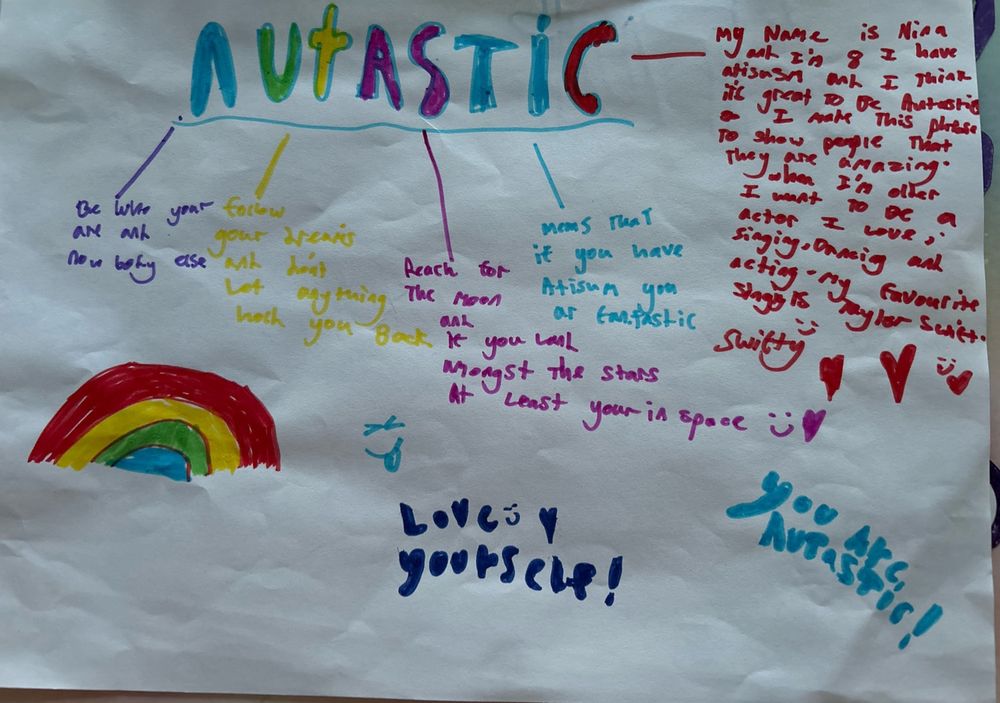 AUTASTIC
My Name is Nina
ank I'm 8 I have
atisusm ank I think
it's great To be Autastic
& I make This phrase
To show people That
They are amazing.
when I'm older
I want To be a
actor I Love,
singing, Dancig and
acting. My favourite
singg is Taylor Swift.
Swifty
Be who your
are ank
now body else
follow
your dreams
ank don't
Let anything
hock you Back
Reach for
The moon
ank
If you Lank
Mongst The stars
At Least your in space
mems ThaT
if you have
Atisum you
ar fantastic
Love
yourself!
you are
Autastic!